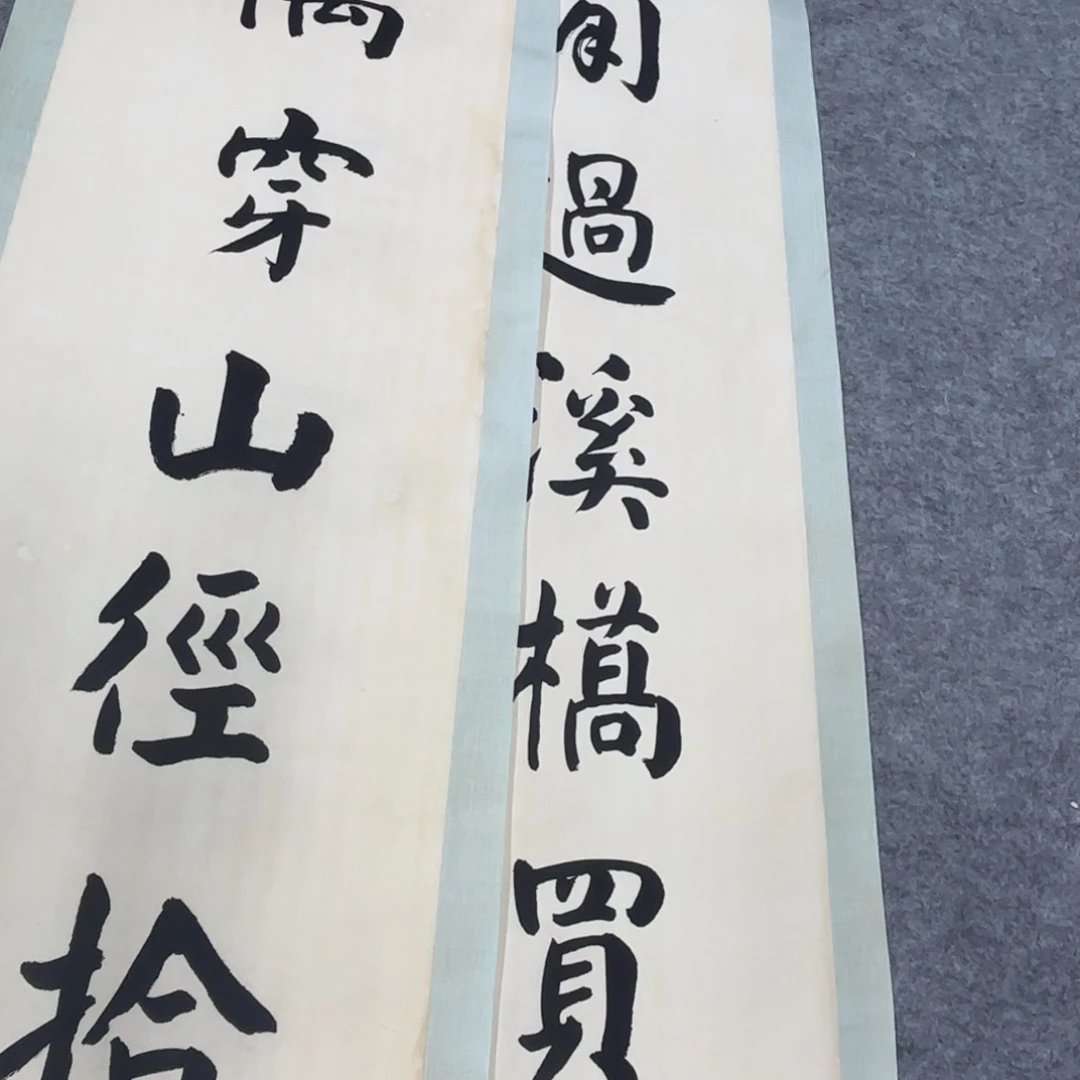 過溪橋買
穿山徑拾